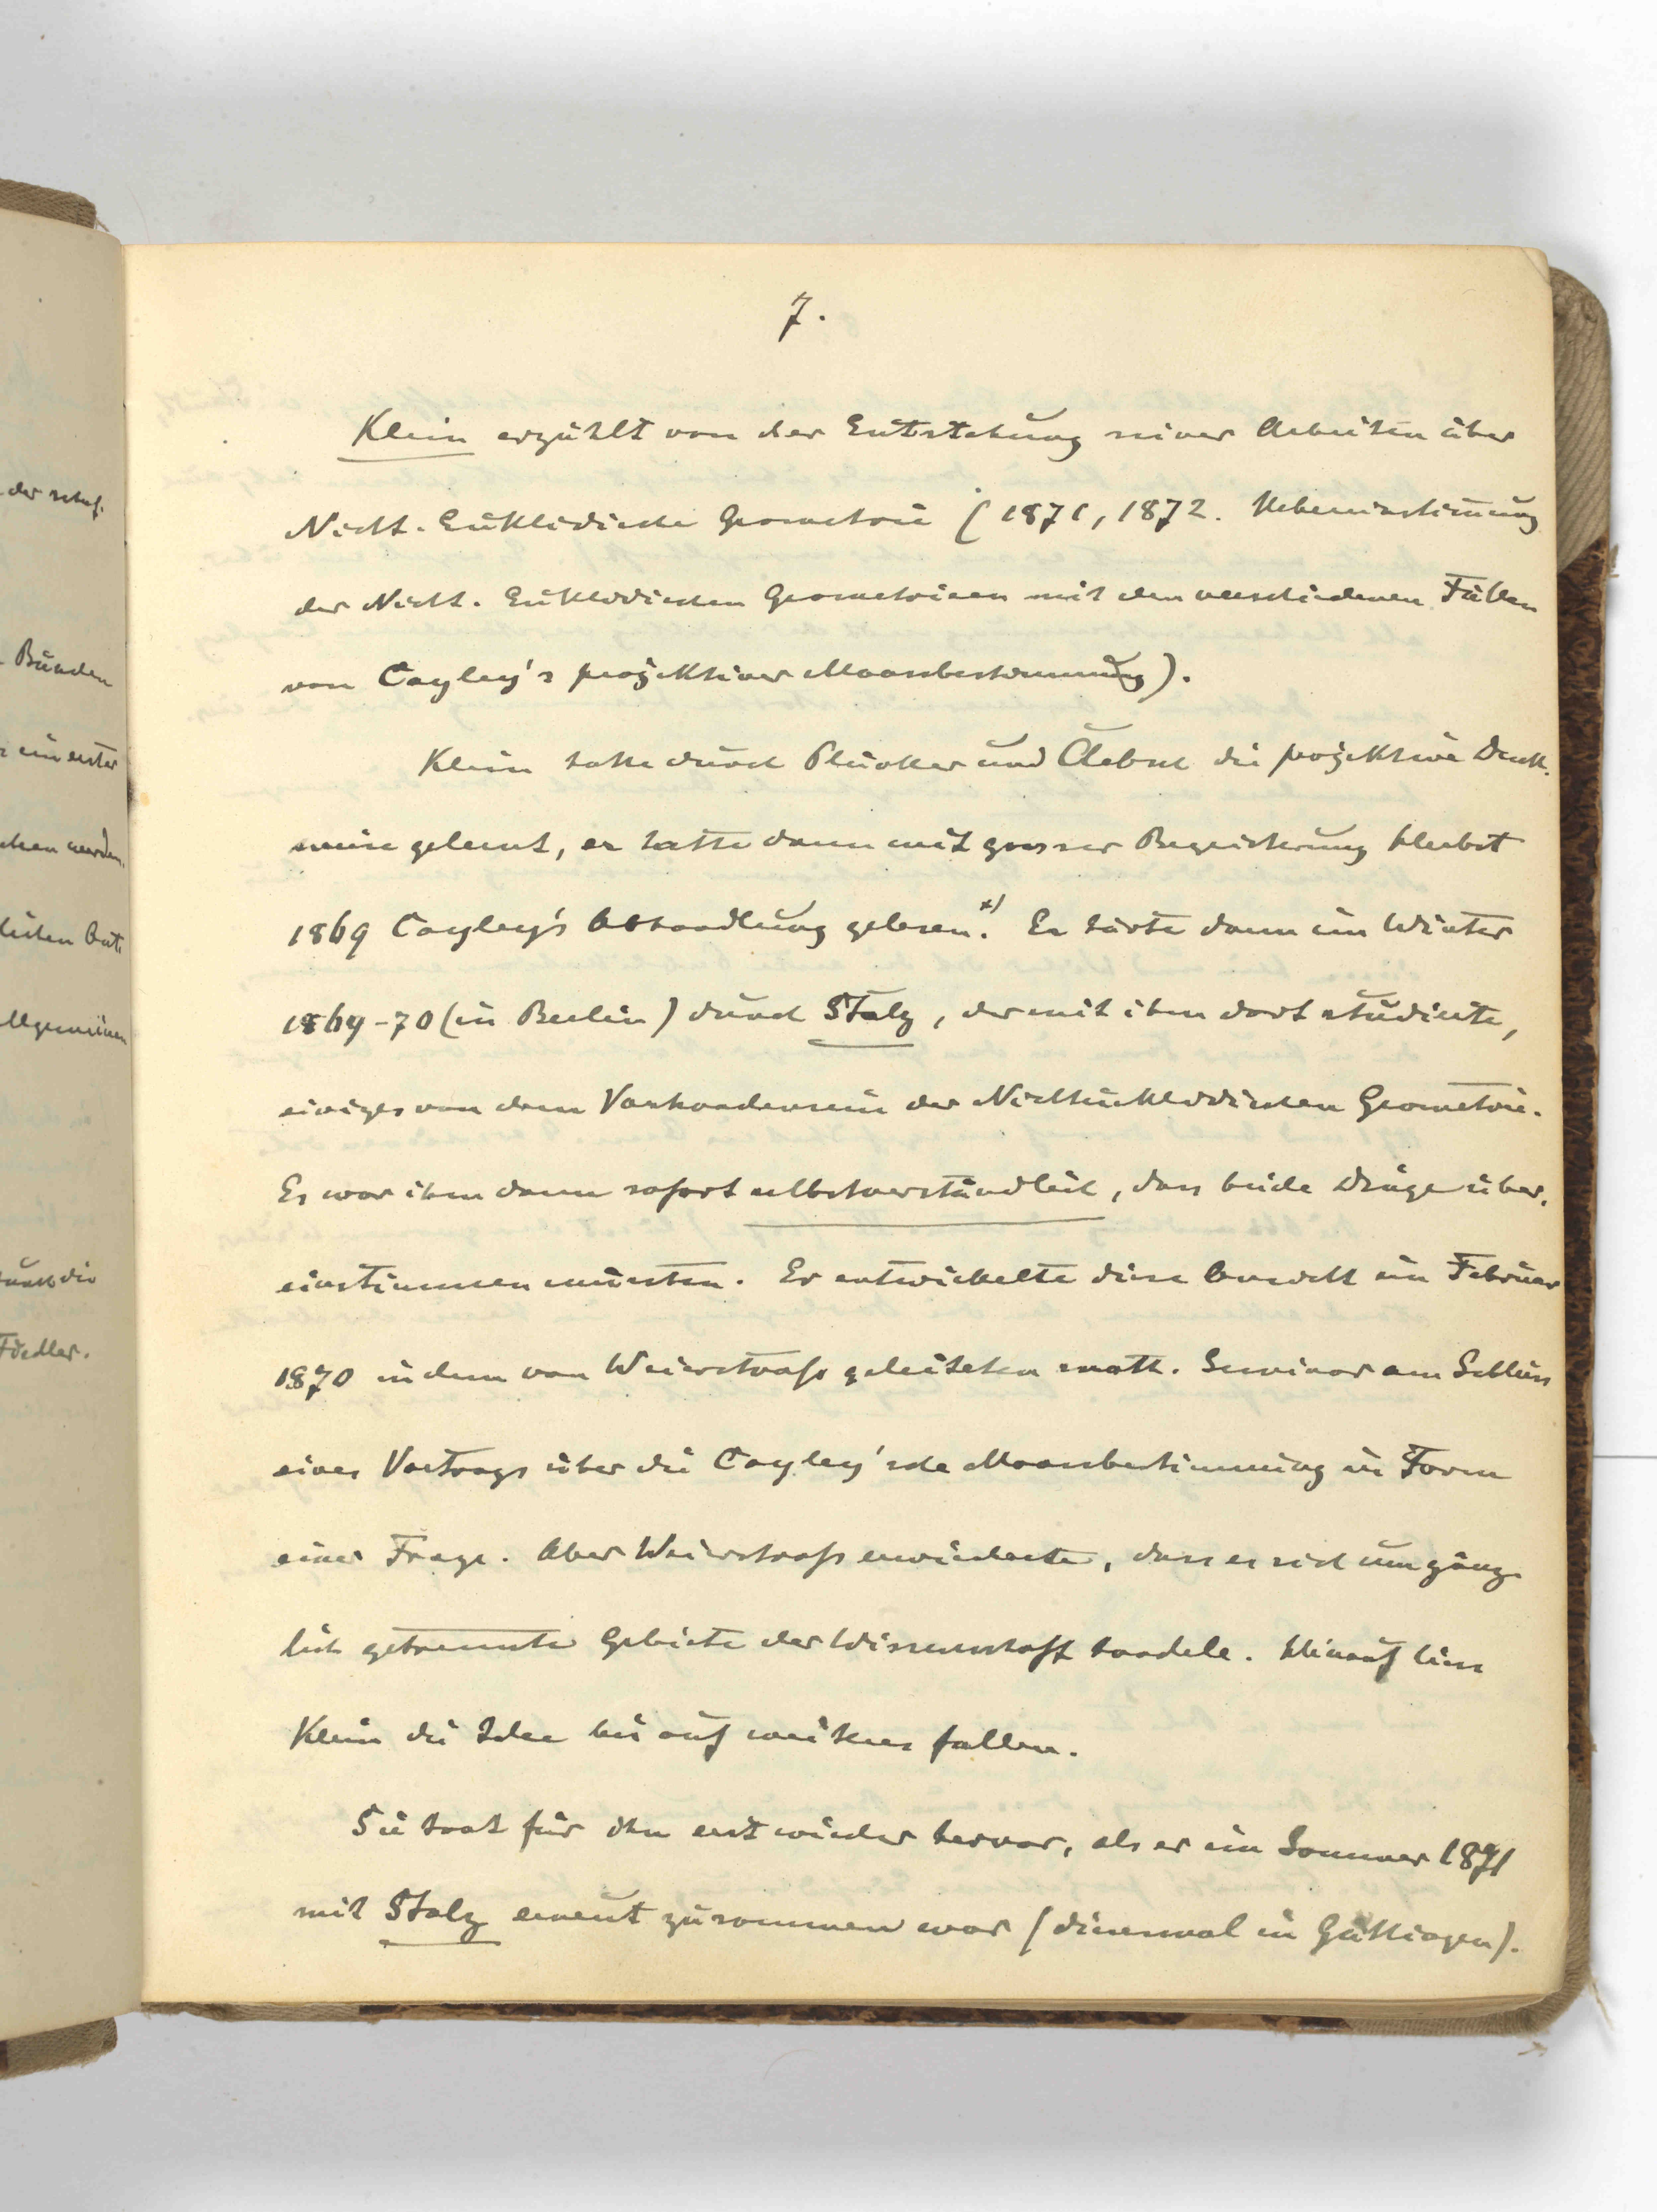 der
Bünden
ein erster
werden.
Fiedler.
7.
Klein erzählt von der Entstehung seiner Arbeiten über
Nicht-Euklidische Geometrie (1871, 1872. Uebereinstimmung
der Nicht-Euklidischen Geometrieen mit den verschiedenen Fällen
von Cayley's projektiver Maassbestimmung).
Klein hatte durch Plücker und Clebsch die projektive Denk-
weise gelernt, er hatte dann mit grosser Begeisterung Herbst
1869 Cayley's Abhandlung gelesen.*) Er hörte dann im Winter
1869-70 (in Berlin) durch Stolz, der mit ihm dort studierte,
einiges von dem Vorhandensein der Nichteuklidischen Geometrie.
Es war ihm dann sofort selbstverständlich, dass beide Dinge über-
einstimmen müssten. Er entwickelte diese Ansicht im Februar
1870 in dem von Weierstraß geleiteten math. Seminar am Schluss
eines Vortrags über die Cayley'sche Maassbestimmung in Form
einer Frage. Aber Weierstraß erwiderte, dass es sich um gänz-
lich getrennte Gebiete der Wissenschaft handele. Hierauf liess
Klein die Idee bis auf weiteres fallen.
Sie trat für ihn erst wieder hervor, als er im Sommer 1871
mit Stolz erneut zusammen war (diesesmal in Göttingen).